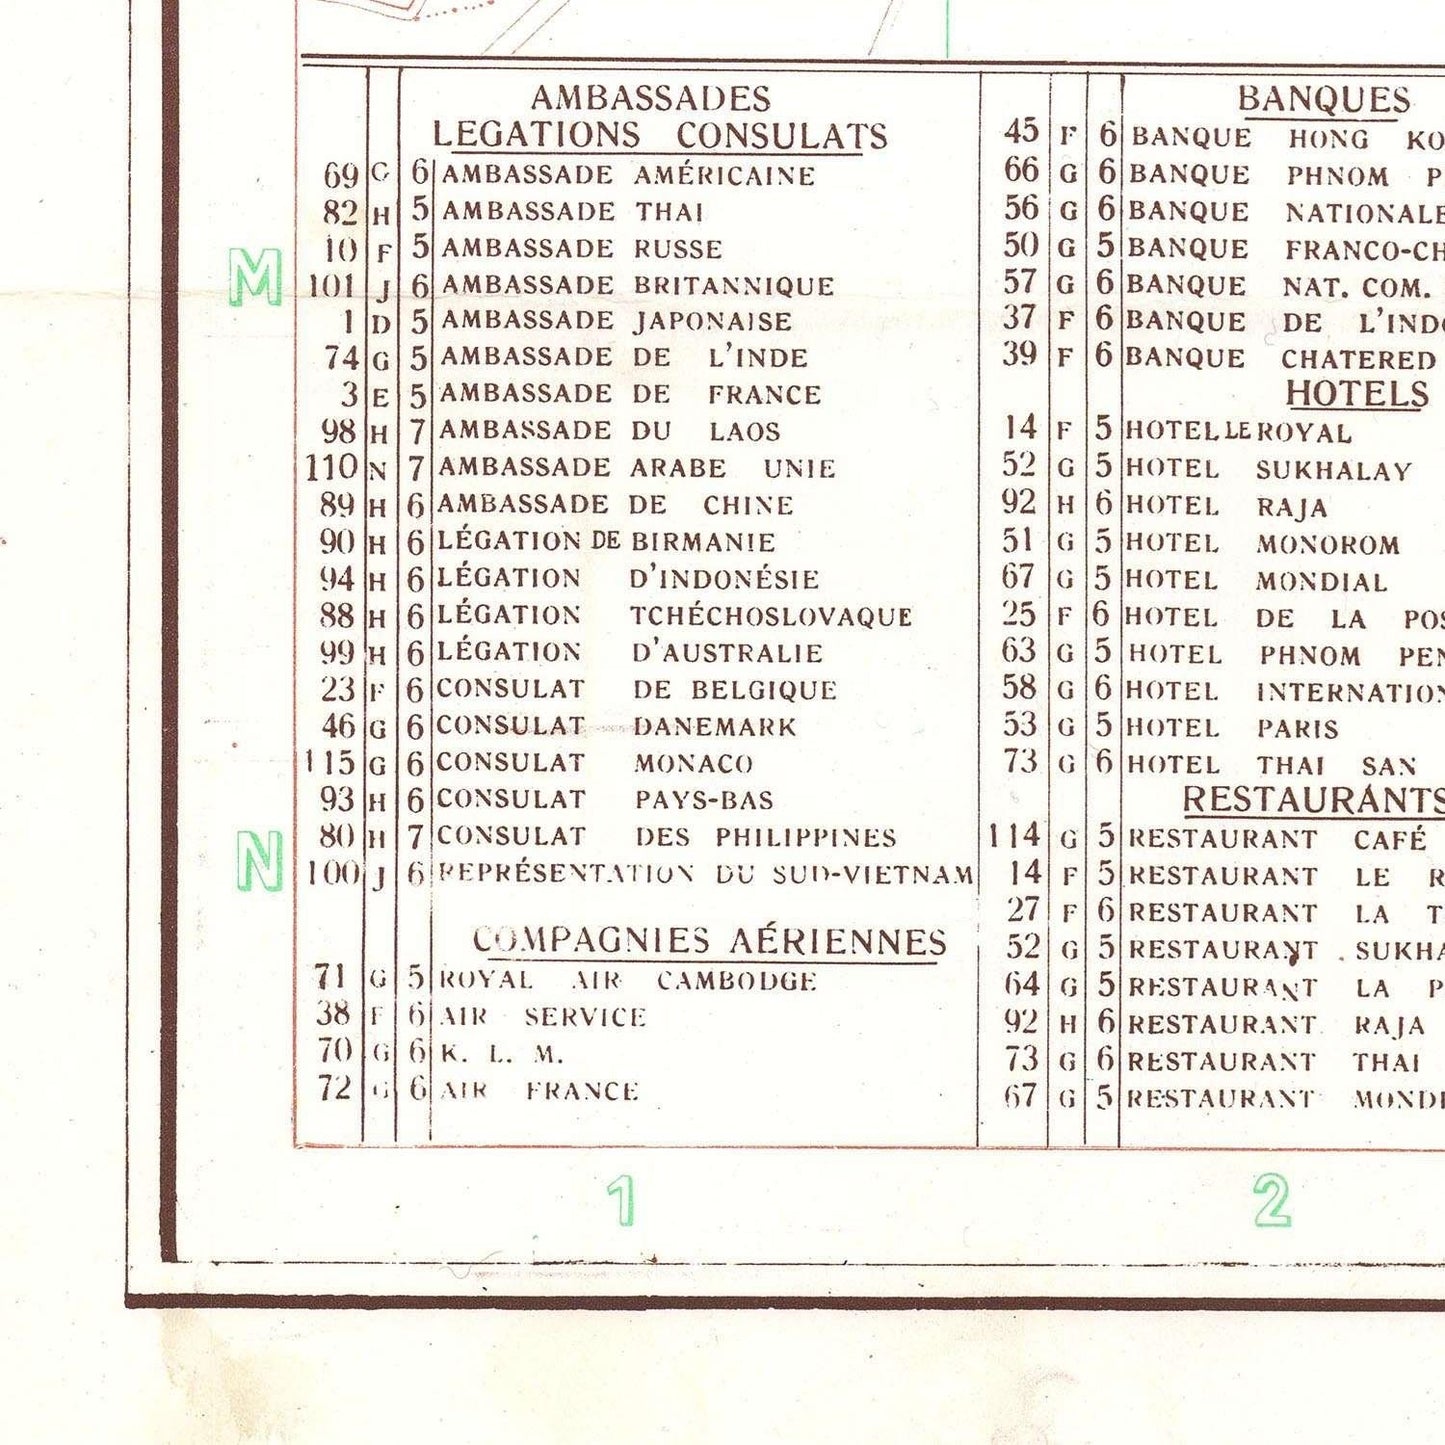 AMBASSADES
LEGATIONS CONSULATS
69 G 6 AMBASSADE AMÉRICAINE
82 H 5 AMBASSADE THAI
10 F 5 AMBASSADE RUSSE
101 J 6 AMBASSADE BRITANNIQUE
1 D 5 AMBASSADE JAPONAISE
74 G 5 AMBASSADE DE L'INDE
3 E 5 AMBASSADE DE FRANCE
98 H 7 AMBASSADE DU LAOS
110 N 7 AMBASSADE ARABE UNIE
89 H 6 AMBASSADE DE CHINE
90 H 6 LÉGATION DE BIRMANIE
94 H 6 LÉGATION D'INDONÉSIE
88 H 6 LÉGATION TCHÉCHOSLOVAQUE
99 H 6 LÉGATION D'AUSTRALIE
23 F 6 CONSULAT DE BELGIQUE
46 G 6 CONSULAT DANEMARK
115 G 6 CONSULAT MONACO
93 H 6 CONSULAT PAYS-BAS
80 H 7 CONSULAT DES PHILIPPINES
100 J 6 REPRÉSENTATION DU SUD-VIETNAM
COMPAGNIES AÉRIENNES
71 G 5 ROYAL AIR CAMBODGE
38 F 6 AIR SERVICE
70 G 6 K. L. M.
72 G 6 AIR FRANCE
BANQUES
45 F 6 BANQUE HONG KO
66 G 6 BANQUE PHNOM P
56 G 6 BANQUE NATIONALE
50 G 5 BANQUE FRANCO-CH
57 G 6 BANQUE NAT. COM.
37 F 6 BANQUE DE L'INDO
39 F 6 BANQUE CHATERED
HOTELS
14 F 5 HOTEL LE ROYAL
52 G 5 HOTEL SUKHALAY
92 H 6 HOTEL RAJA
51 G 5 HOTEL MONOROM
67 G 5 HOTEL MONDIAL
25 F 6 HOTEL DE LA POS
63 G 5 HOTEL PHNOM PEN
58 G 6 HOTEL INTERNATION
53 G 5 HOTEL PARIS
73 G 6 HOTEL THAI SAN
RESTAURANTS
114 G 5 RESTAURANT CAFÉ
14 F 5 RESTAURANT LE R
27 F 6 RESTAURANT LA T
52 G 5 RESTAURANT SUKHA
64 G 5 RESTAURANT LA P
92 H 6 RESTAURANT RAJA
73 G 6 RESTAURANT THAI
67 G 5 RESTAURANT MONDI
M
N
1
2